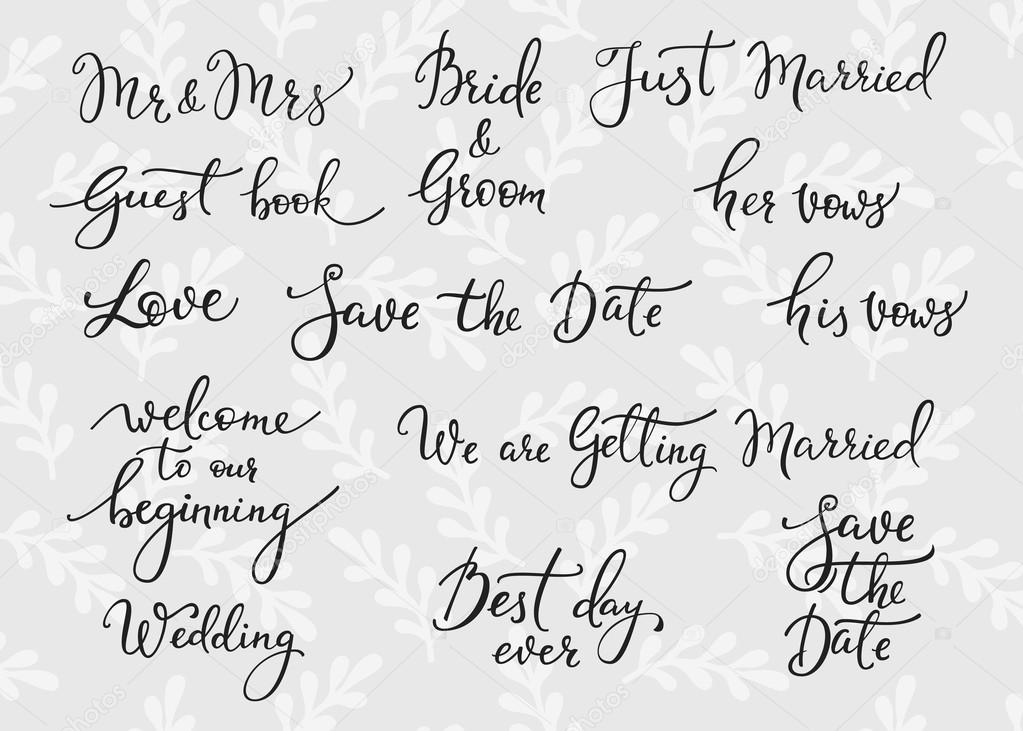 Mr & Mrs
Bride
&
Groom
Just Married
Guest book
her vows
Love
Save the Date
his vows
welcome
to our
beginning
We are Getting Married
Save
the
Date
Best day
ever
Wedding
depositphotos